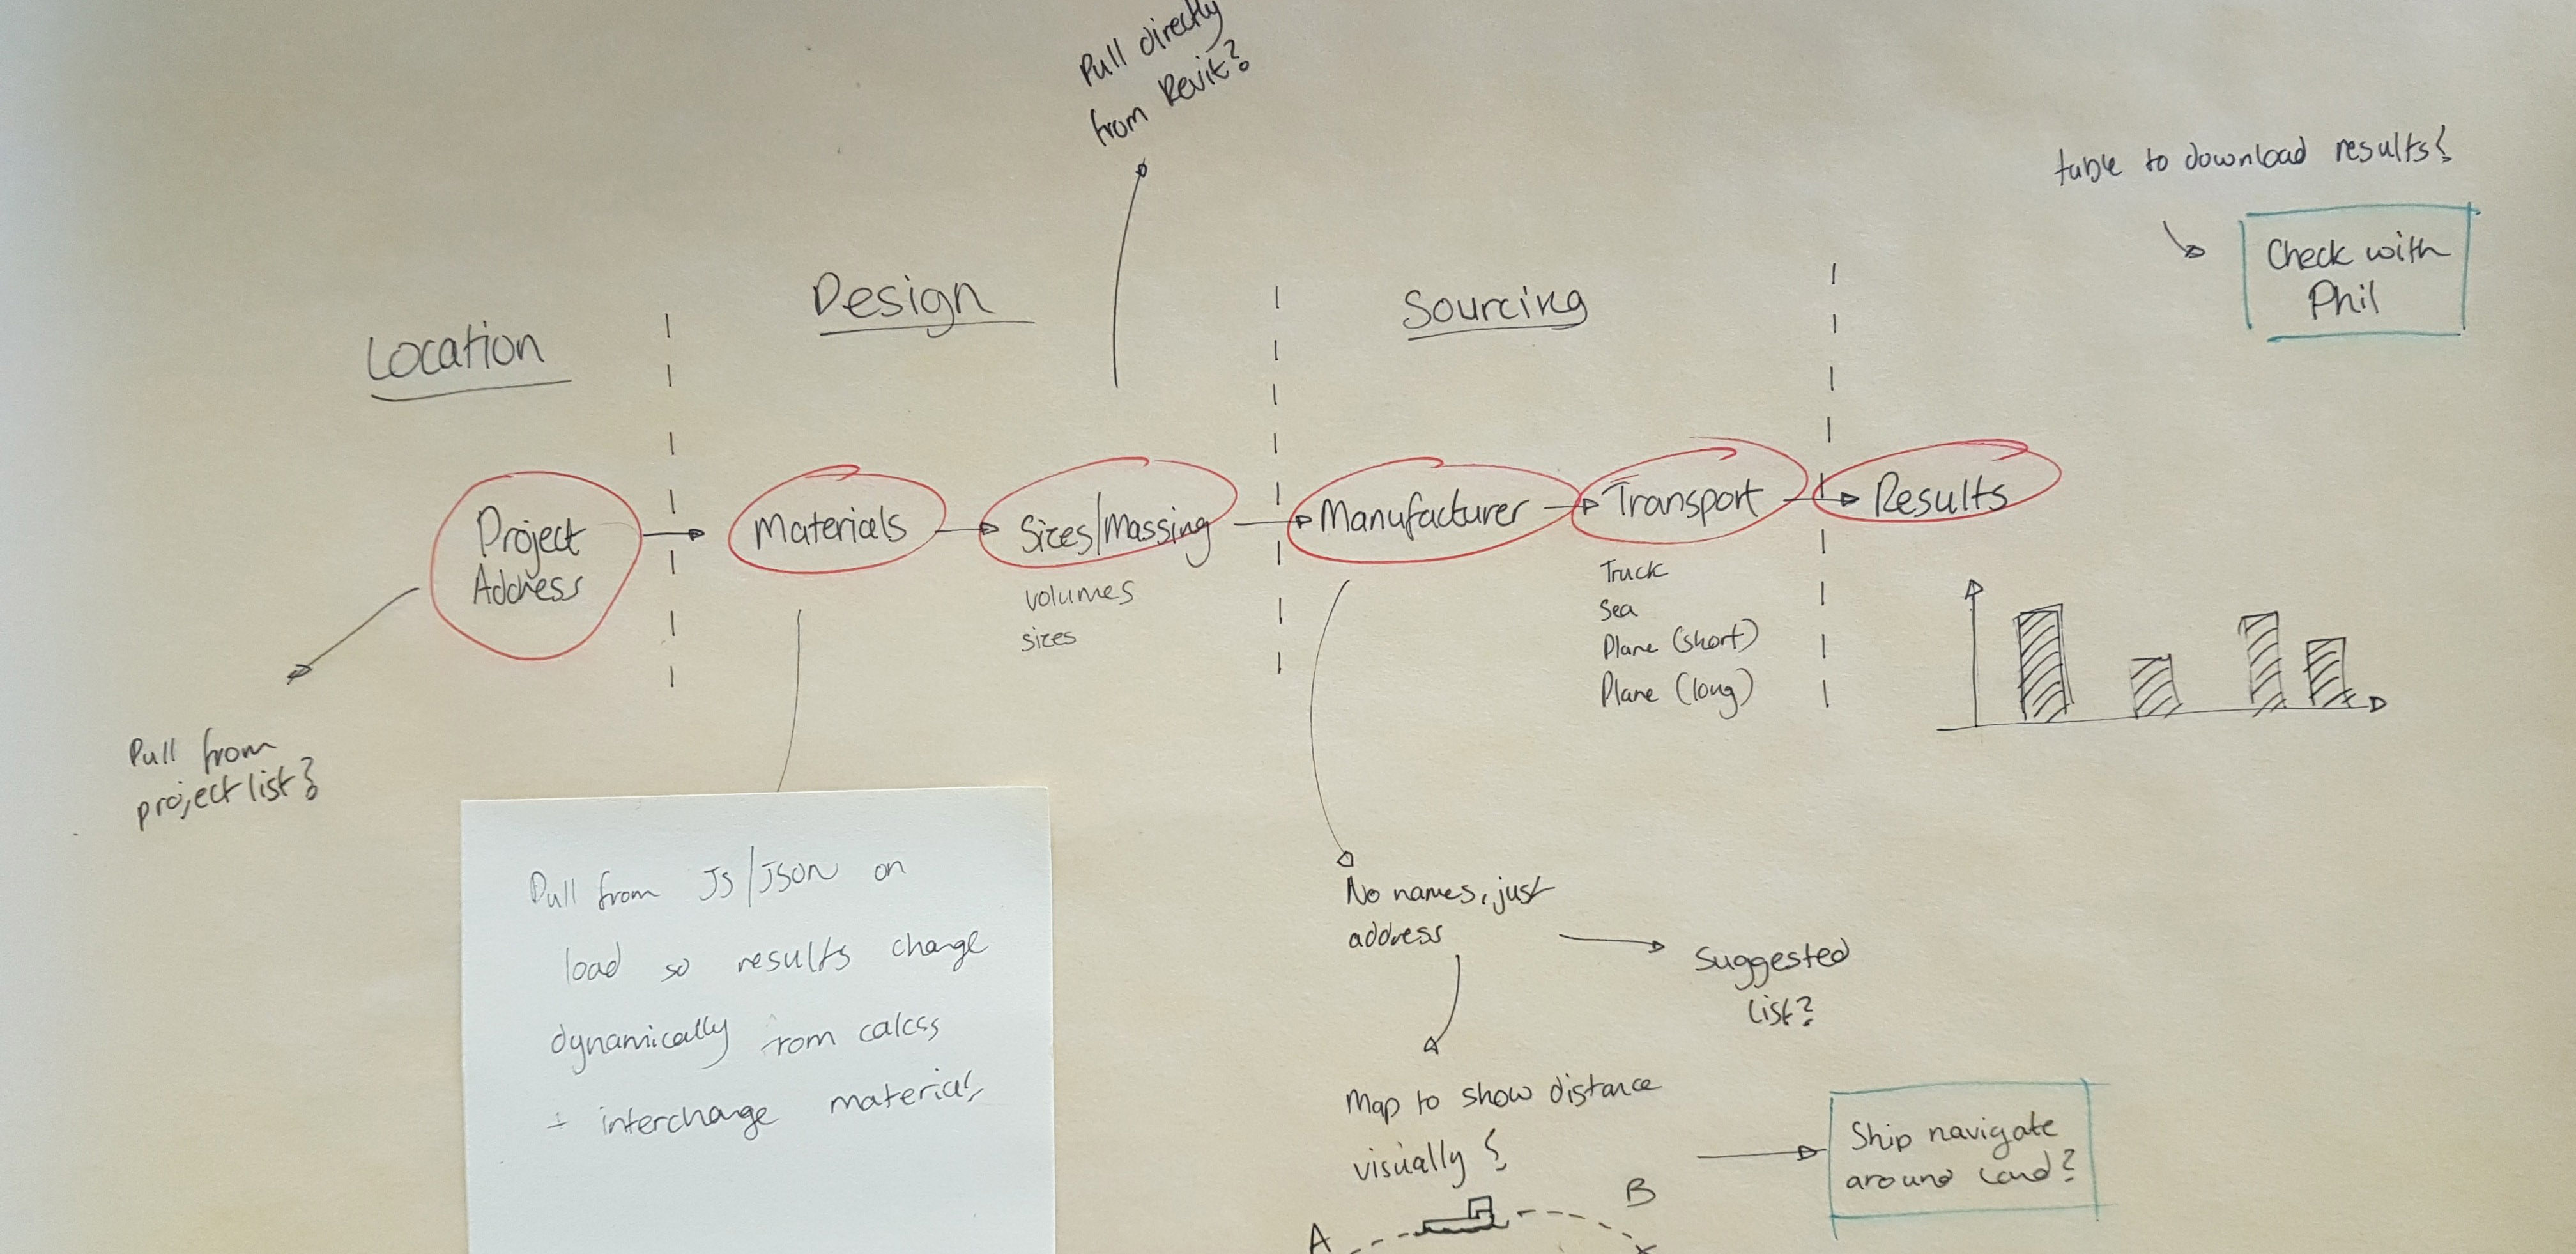 Pull directly
from Revit?
table to download results?
Check with
Phil
Location
Design
Sourcing
Project
Address
Materials
Sizes/Massing
volumes
sizes
Manufacturer
Transport
Truck
Sea
Plane (short)
Plane (long)
Results
Pull from
project list?
Pull from JS/JSON on
load so results change
dynamically from calcs
+ interchange materials
No names, just
address
Suggested
list?
Map to show distance
visually?
Ship navigate
around land?
A
B